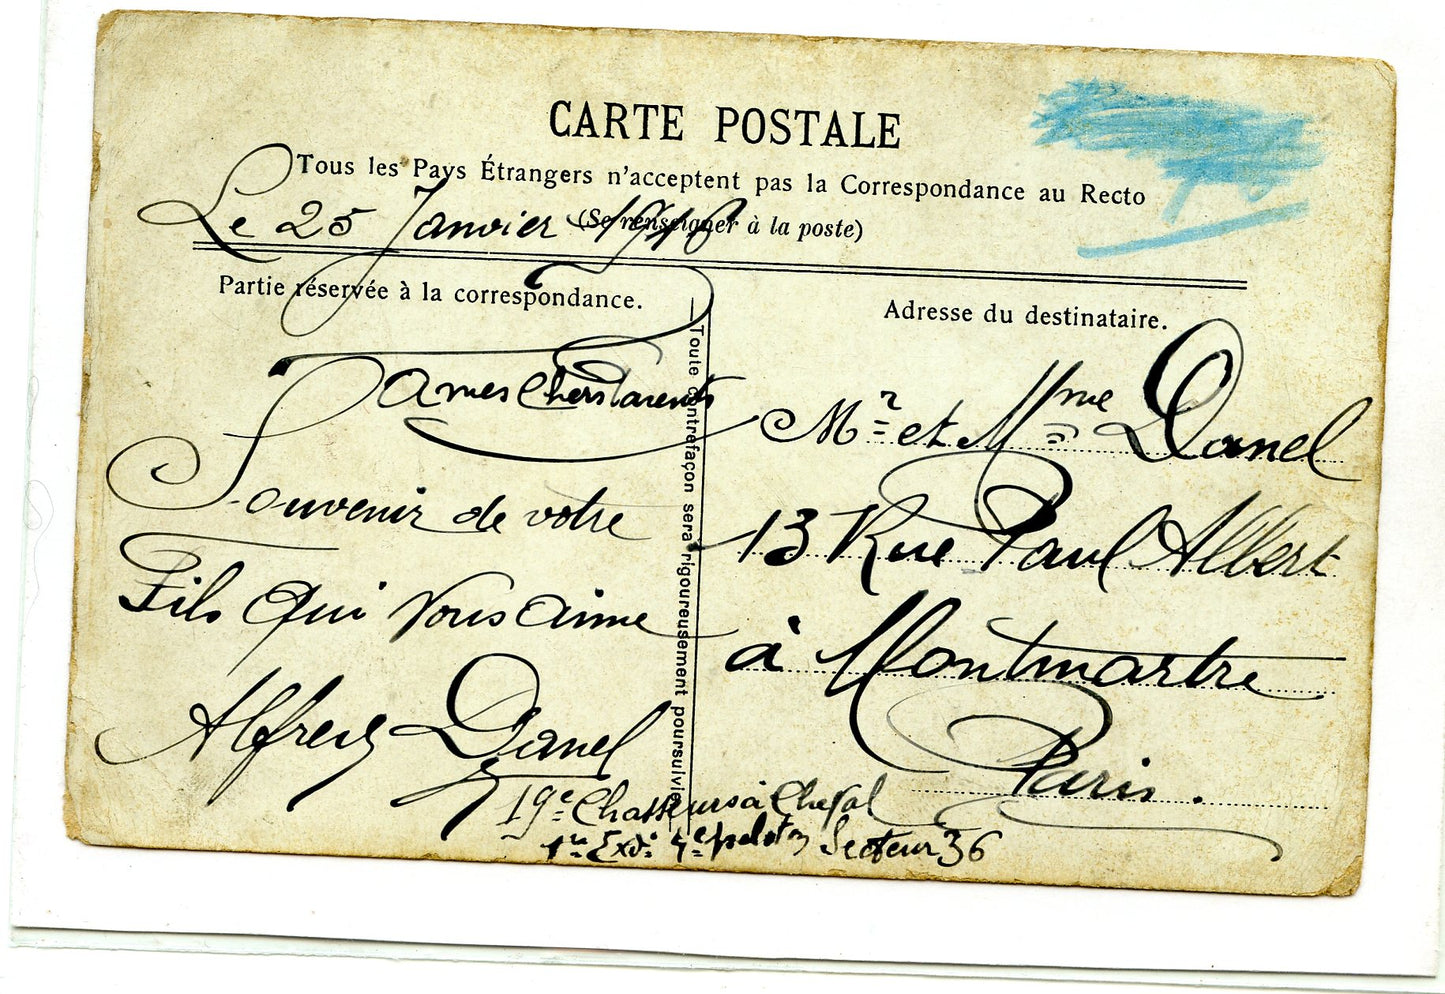 CARTE POSTALE
Tous les Pays Étrangers n'acceptent pas la Correspondance au Recto
(Se renseigner à la poste)
Le 25 Janvier 1916
Partie réservée à la correspondance.
Adresse du destinataire.
Toute contrefaçon sera rigoureusement poursuivie
A mes Chers Parents
Souvenir de votre
Fils Qui Vous aime
Alfred Danel
19e Chasseurs à Cheval
4e peloton Secteur 36
Mr et Mme Danel
13 Rue Paul Albert
à Montmartre
Paris.